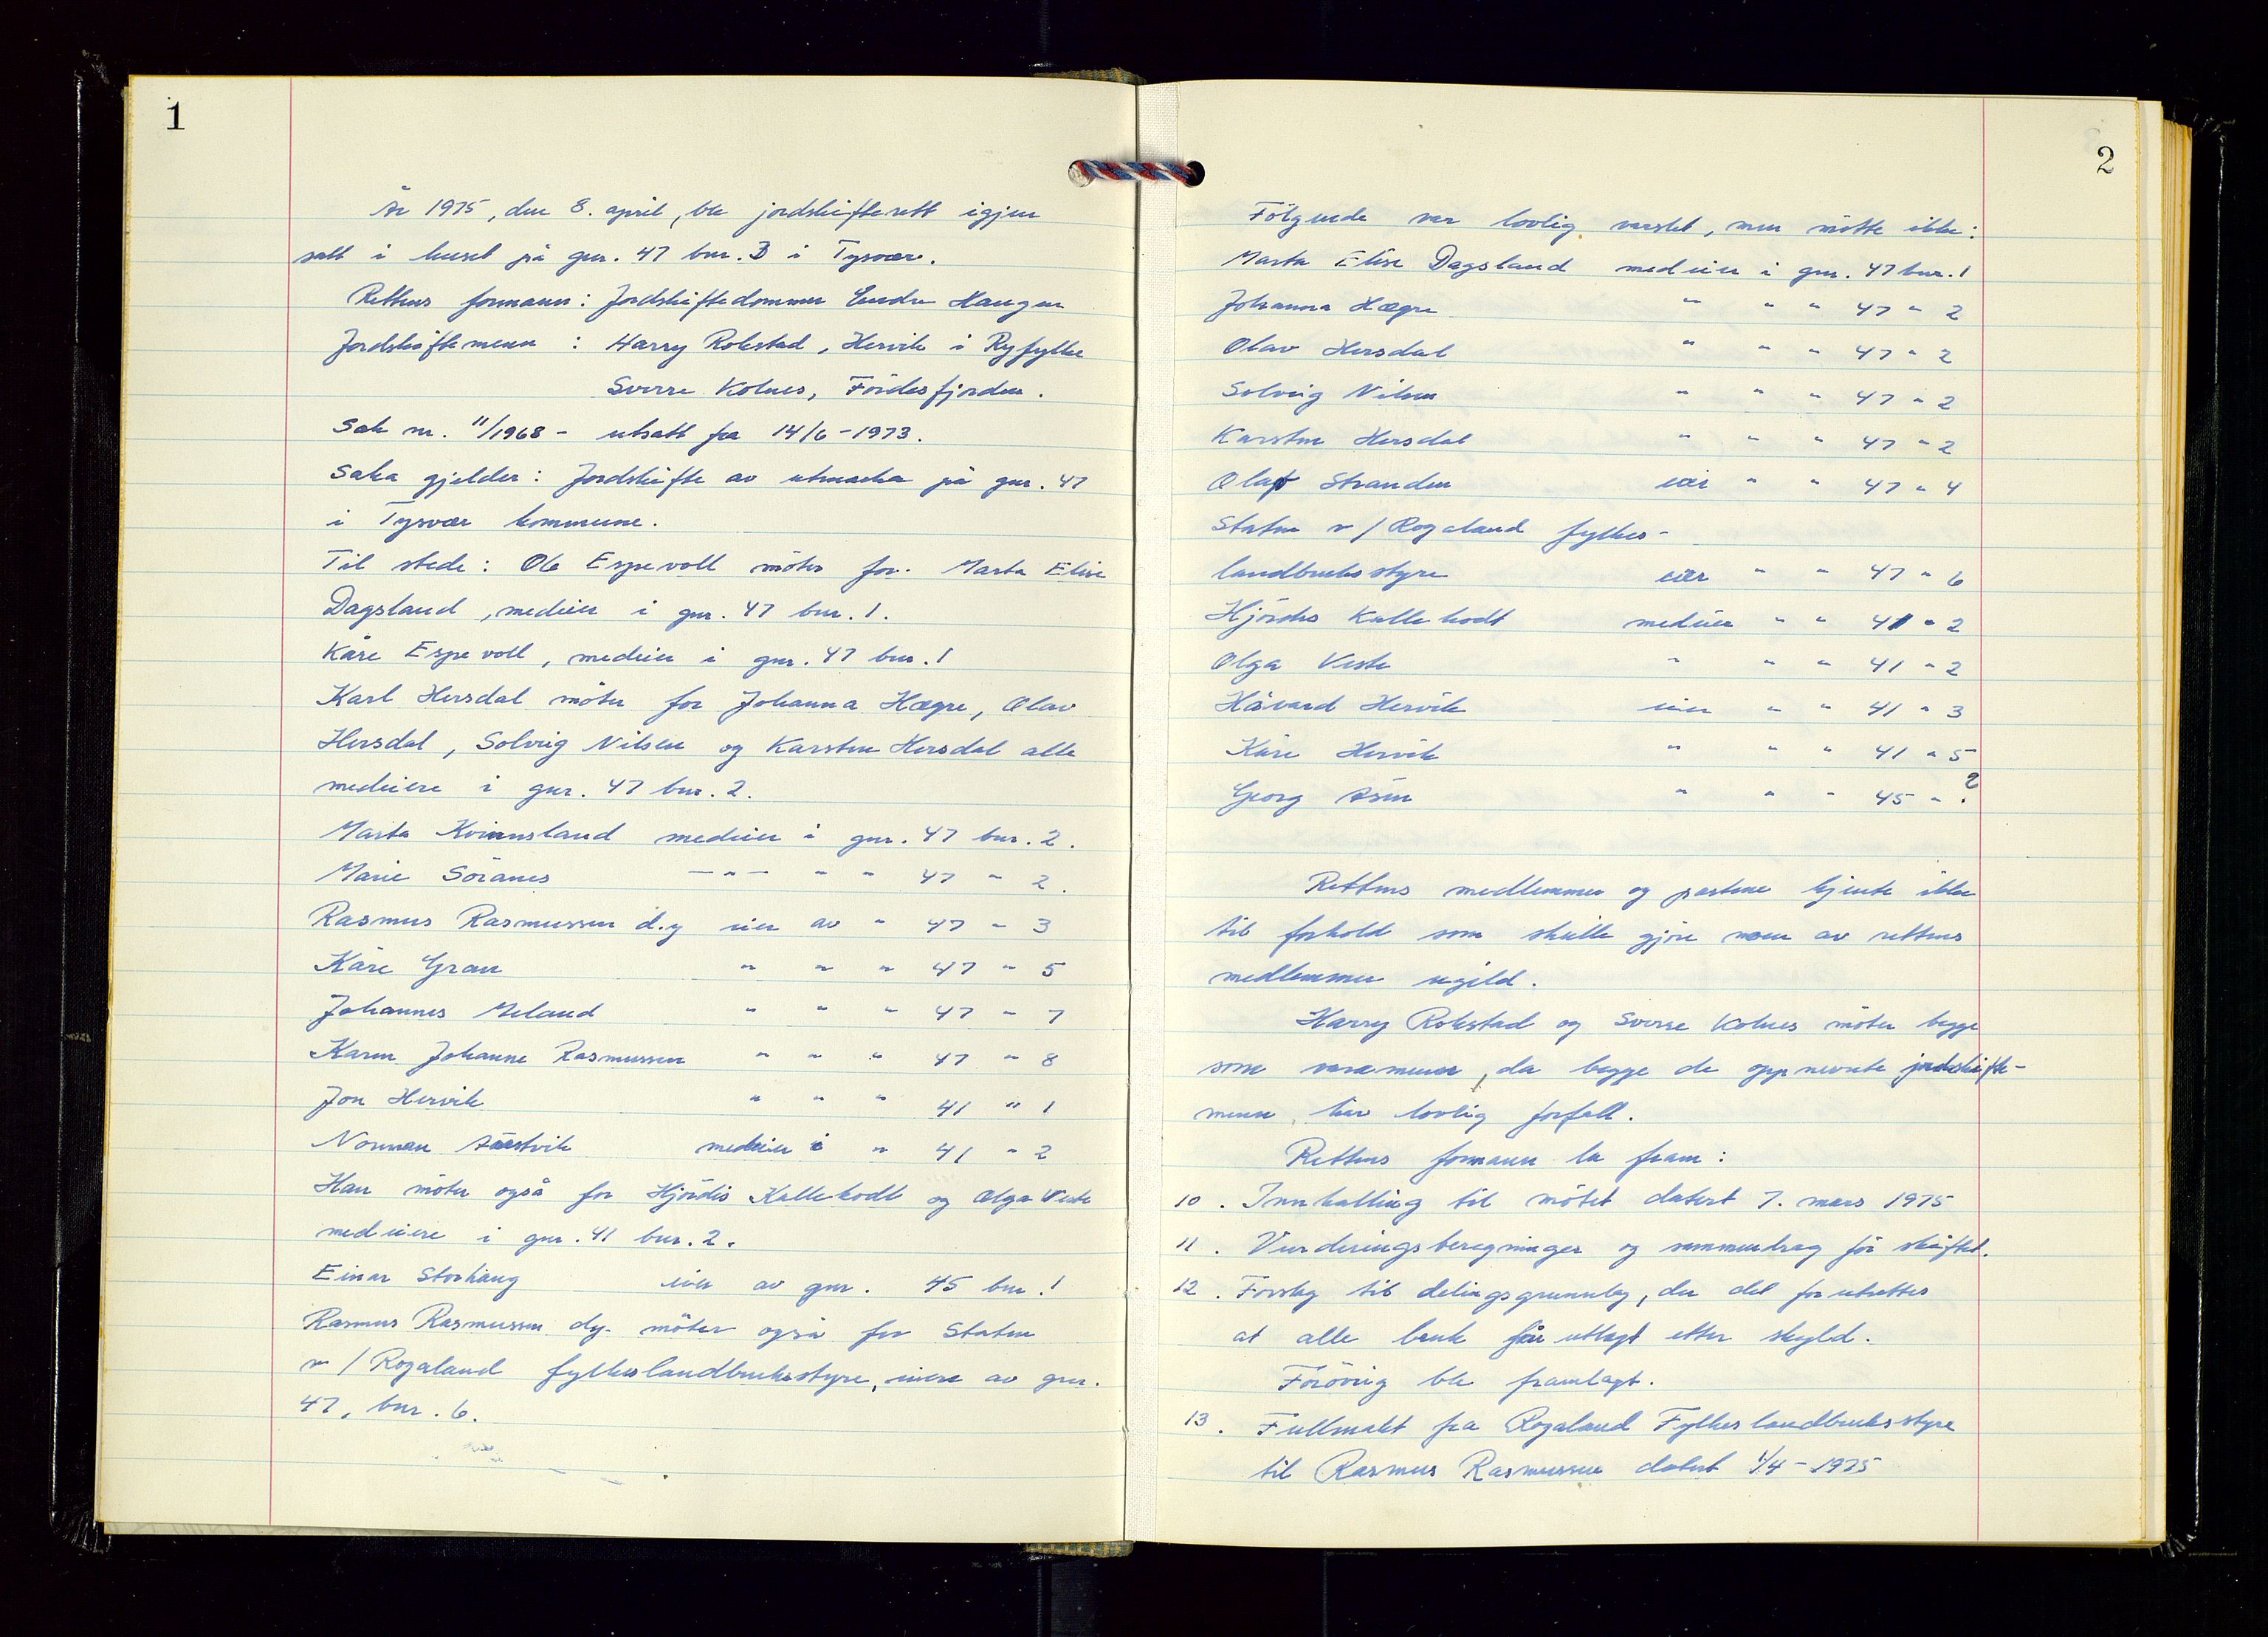 1
År 1975, den 8. april, ble jordskifterett igjen
satt i huset på gnr. 47 bnr. 3 i Tysvær.
Rettens formann: Jordskiftedommer Endre Haugen
Jordskiftemenn : Harry Rokstad, Hervik i Ryfylke
Sverre Kolnes, Førdesfjorden.
Sak nr. 11/1968 - utsatt fra 14/6-1973.
Saka gjelder: Jordskifte av utmarka på gnr. 47
i Tysvær kommune.
Til stede: Ole Espevoll möter for Marta Elise
Dagsland, medeier i gnr. 47 bnr. 1.
Kåre Espevoll, medeier i gnr. 47 bnr. 1
Karl Hersdal möter for Johanna Hægre, Olav
Hersdal, Solveig Nilsen og Karsten Hersdal alle
medeiere i gnr. 47 bnr. 2.
Marta Kvinnsland medeier i gnr. 47 bnr. 2.
Marie Söranes — " — " " 47 " 2.
Rasmus Rasmussen d.y eier av " 47 " 3
Kåre Gran " " " 47 " 5
Johannes Meland " " " 47 " 7
Karen Johanne Rasmussen " " " 47 " 8
Jon Hervik " " " 41 " 1
Norman medeier i " 41 " 2
Han möter også for Hjördis Kallekodt og Olga Veste
medeiere i gnr. 41 bnr. 2.
Einar Storhaug eier av gnr. 45 bnr. 1
Rasmus Rasmussen dy. möter også for Staten
v/Rogaland fylkeslandbruksstyre, eiere av gnr.
47, bnr. 6.
2
Fölgende var lovlig varslet, men mötte ikke:
Marta Elise Dagsland medeier i gnr. 47 bnr. 1
Johanna Hægre " " " 47 " 2
Olav Hersdal " " " 47 " 2
Solveig Nilsen " " " 47 " 2
Karsten Hersdal " " " 47 " 2
Olaf Stranden eier " " 47 " 4
Staten v/Rogaland fylkes-
landbruksstyre eier " " 47 " 6
Hjördis Kallekodt medeier " " 41 " 2
Olga Veste " " " 41 " 2
Håvard Hervik eier " " 41 " 3
Kåre Hervik " " " 41 " 5
Georg " " " 45 " ?
Rettens medlemmer og partene kjente ikke
til forhold som skulle gjöre noen av rettens
medlemmer ugild.
Harry Rokstad og Sverre Kolnes möter begge
som varamenn, da begge de oppnevnte jordskifte-
menn har lovlig forfall.
Rettens formann la fram:
10. Innkalling til mötet datert 7. mars 1975
11. Verderingsberegninger og sammendrag för skiftet.
12. Forslag til delingsgrunnlag, der det forutsettes
at alle bruk får utlagt etter skyld.
Forövrig ble framlagt.
13. Fullmakt fra Rogaland Fylkeslandbruksstyre
til Rasmus Rasmussen datert 1/4-1975